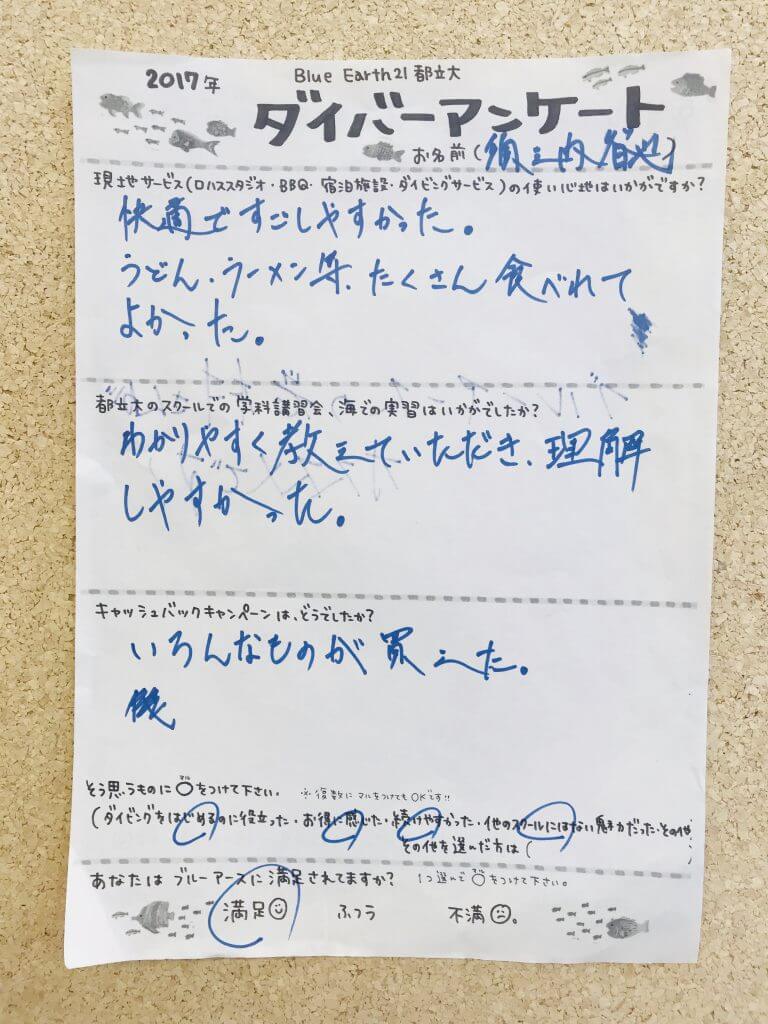 2017年 Blue Earth21 都立大
ダイバーアンケート
お名前(須之内
現地サービス(ロハススタジオ・BBQ・宿泊施設・ダイビングサービス)の使い心地はいかがですか?
快適ですごしやすかった。
うどん、ラーメン等、たくさん食べれて
よかった。
都立大のスクールでの学科講習会、海での実習はいかがでしたか?
わかりやすく教えていただき、理解
しやすかった。
キャッシュバックキャンペーンは、どうでしたか?
いろんなものが買えた。
そう思うものに○をつけて下さい。 ※複数にマルをつけてもOKです!!
(ダイビングをはじめるのに役立った・お得に感じた・続けやすかった・他のスクールにはない魅力だった・その他
その他を選んだ方は( )
あなたはブルーアースに満足されてますか? 1つ選んで○をつけて下さい。
満足 ふつう 不満。